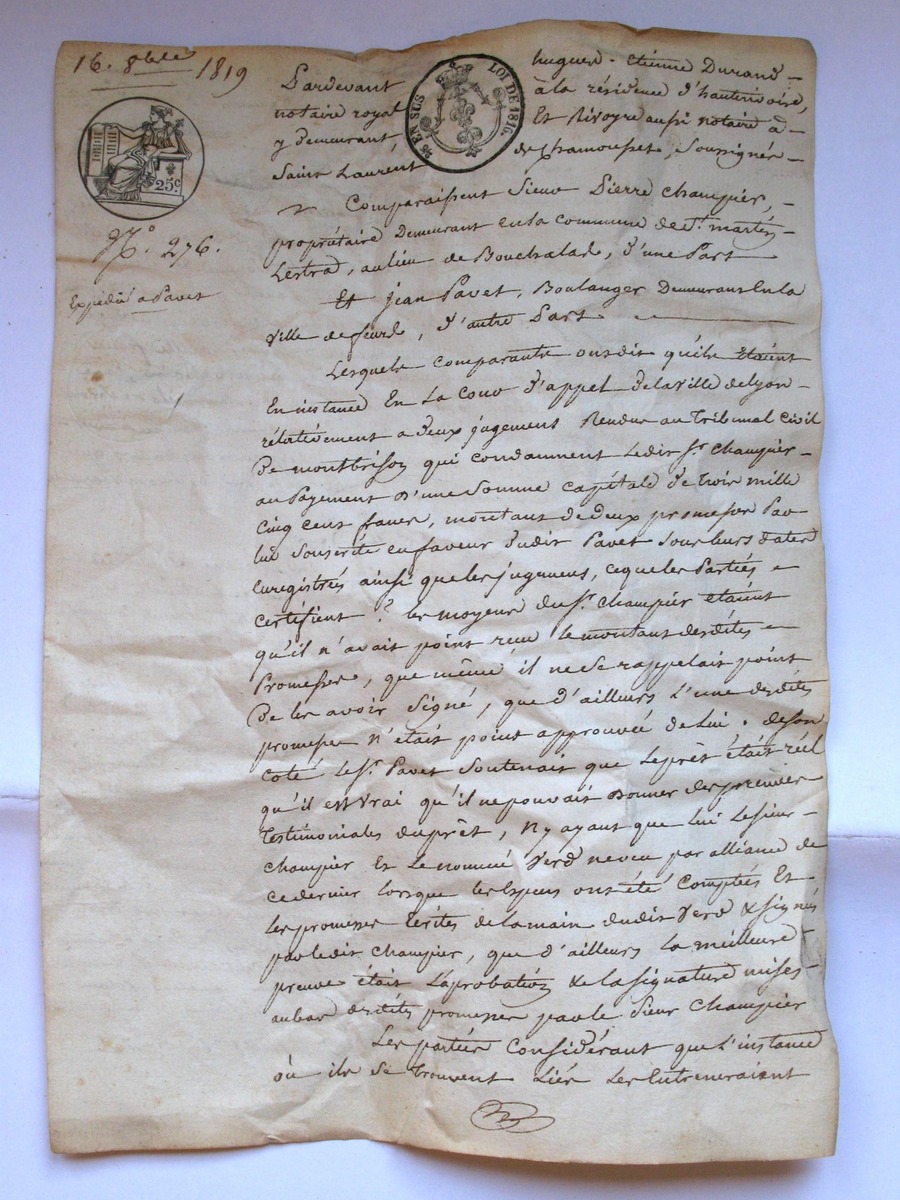 16. 8bre 1819
25c
% EN SUS LOI DE 1816.
No. 276.
Expédié a Pavet
Pardevant hugues-Etienne Durand
notaire royal à la résidence d'hauterivoire,
y demeurant Et Rivoyre aussi notaire à
Saint Laurent de Chamousset, soussignés
Comparaissent Sieur Pierre Champier,
propriétaire Demeurant En la commune de St. martin
Lestrad, au lieu de Bouchalad, d'une Part
Et jean Pavet, Boulanger Demeurant En la
Ville de feurs, d'autre Part.
Lesquels comparants ont dit qu'ils Etaient
En instance En La Cour d'appel de la ville de Lyon
rélativement a deux jugement Rendus au Tribunal Civil
De montbrison qui condamnent Ledit Sr. Champier
au Payement d'une Somme capitale de trois mille
Cinq cent francs, montant de deux promesses Par
lui Souscrite en faveur dudit Pavet Sous leurs dates
Enregistrés ainsi que les jugemens, ce que les Parties
certifient les moyens du Sr. Champier étaient
qu'il n'avait point reçu le montant desdites
Promesses, que même il ne Se rappelait point
De les avoir Signé, que d'ailleurs L'une desdites
promesses n'était point approuvée de Lui. de Son
coté le Sr. Pavet Soutenait que Le prêt était réel
qu'il est vrai qu'il ne pouvait Donner des preuves
Testimoniales du prêt, n'y ayant que Lui Le sieur
Champier Et Le nommé Verd neveu par alliance de
ce dernier lorsque les Espèces ont été Comptées Et
les promesses Ecrites de la main dudit Verd & signés
par ledit Champier, que d'ailleurs la meilleure
preuve était L'aprobation & la signature mises
au bas desdites promesses par le Sieur Champier
Les parties Considérant que L'instance
où ils se trouvent Liés Les Entreneraient